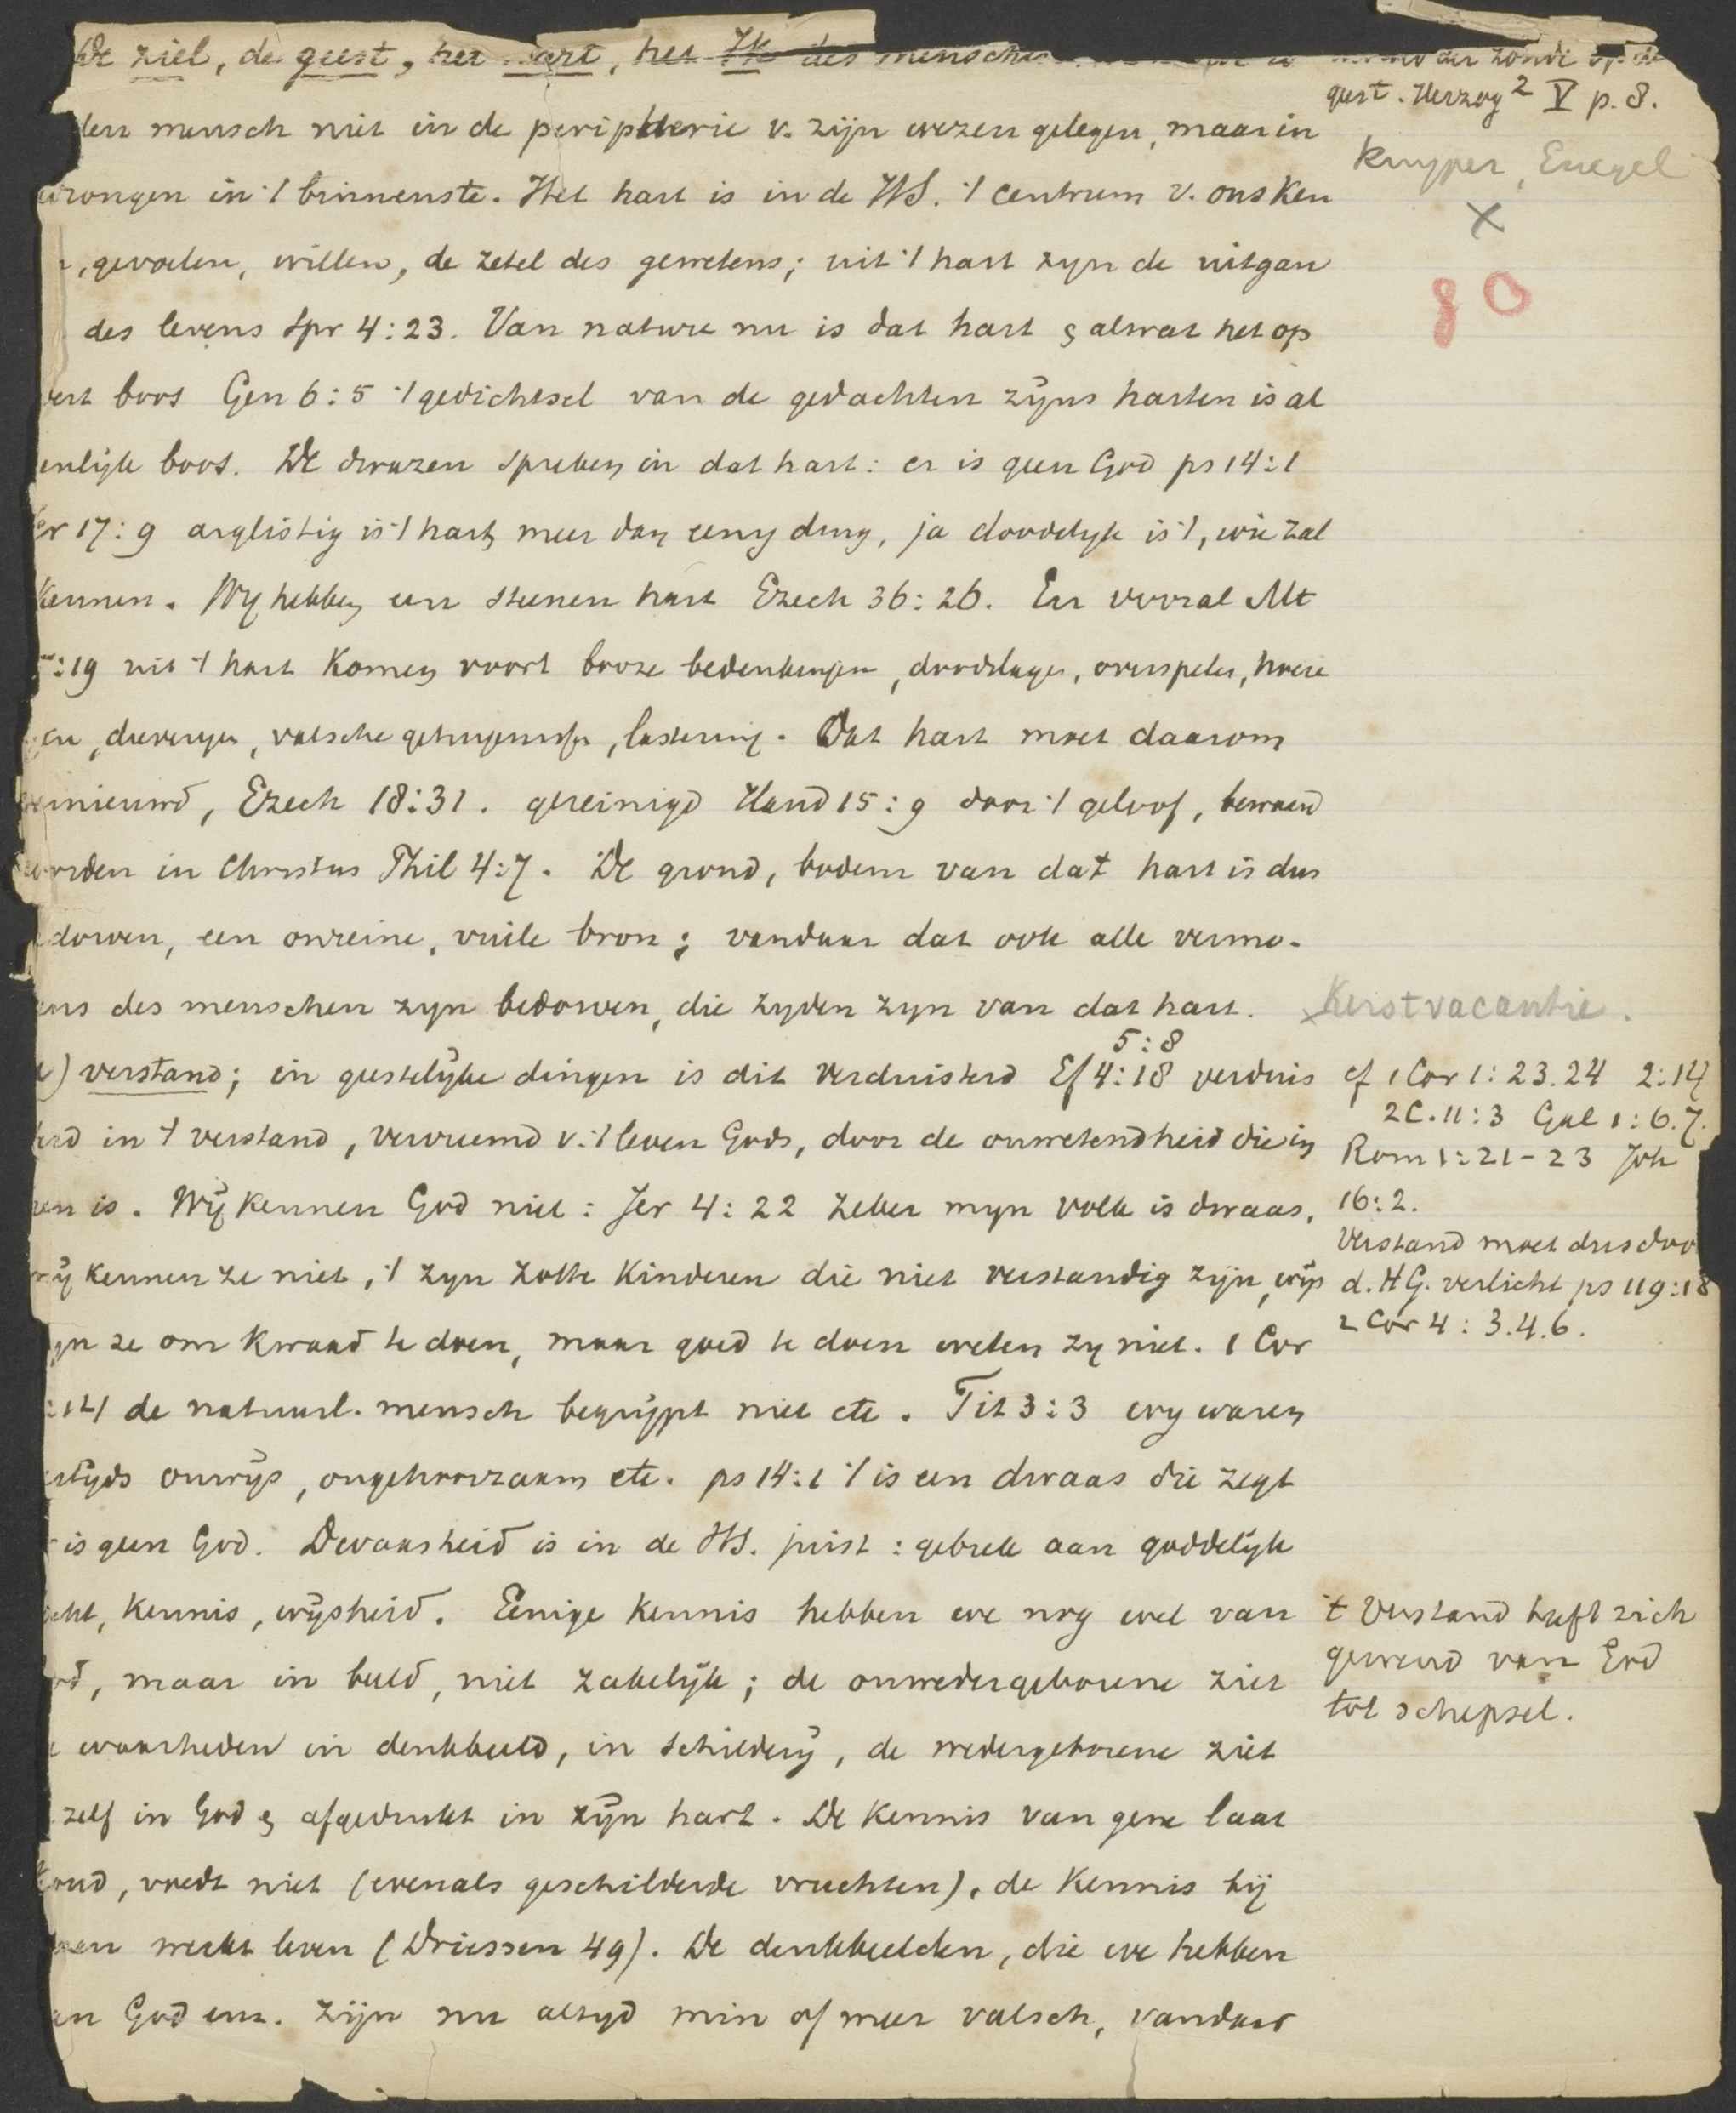 De ziel, de geest, het hart, het Ik des menschen
der zonde op de
geest. Herzog² V p. 8.
den mensch niet in de peripherie v. zijn wezen gelegen, maar in
Kuyper, Engel
drongen in 't binnenste. Het hart is in de HS. 't centrum v. ons ken
X
, gevoelen, willen, de zetel des gewetens; uit 't hart zyn de uitgan
80
des levens Spr 4:23. Van nature nu is dat hart & alwat het op
vert boos Gen 6:5 't gedichtsel van de gedachten zijns harten is al
enlijk boos. De dwazen spreken in dat hart: er is geen God ps 14:1
er 17:9 arglistig is 't hart, meer dan eenig ding, ja doodelyk is 't, wie zal
kennen. Wy hebben een steenen hart Ezech 36:26. En vooral Mt
5:19 uit 't hart komen voort booze bedenkingen, doodslagen, overspelen, hoere
en, dieverijen, valsche getuigenissen, lastering. Dat hart moet daarom
vernieuwd, Ezech 18:31. gereinigd Hand 15:9 door 't geloof, bewaard
worden in Christus Phil 4:7. De grond, bodem van dat hart is dus
dorven, een onreine, vuile bron; vandaar dat ook alle vermo-
ens des menschen zyn bedorven, die zyden zyn van dat hart.
x Kerstvacantie.
) verstand; in geestelyke dingen is dit verduisterd Ef 4:18 5:8 verduis
cf 1 Cor 1:23.24 2:14
2 C. 11:3 Gal 1:6.7.
erd in 't verstand, vervreemd v. 't leven Gods, door de onwetendheid die in
Rom 1:21-23 Joh
16:2.
en is. Wij kennen God niet: Jer 4:22 zeker myn volk is dwaas,
Verstand moet dus doo
mij kennen ze niet, 't zyn zotte kinderen die niet verstandig zijn, wijs
d. HG. verlicht ps 119:18
2 Cor 4:3.4.6.
yn ze om kwaad te doen, maar goed te doen weten zy niet. 1 Cor
:14 de natuurl. mensch begrijpt niet etc. Tit 3:3 wy waren
ertyds onwijs, ongehoorzaam etc. ps 14:1 't is een dwaas die zegt
is geen God. Dwaasheid is in de HS. juist: gebrek aan goddelijk
icht, kennis, wijsheid. Eenige kennis hebben we nog wel van
't Verstand heeft zich
gewend van God
tot schepsel.
od, maar in beeld, niet zakelijk; de onwedergeborene ziet
e waarheden in denkbeeld, in schilderij, de wedergeborene ziet
zelf in God & afgedrukt in zijn hart. De kennis van gene laat
koud, voedt niet (evenals geschilderde vruchten), de kennis bij
werkt leven (Driessen 49). De denkbeelden, die we hebben
an God enz. zijn nu altyd min of meer valsch, vandaar